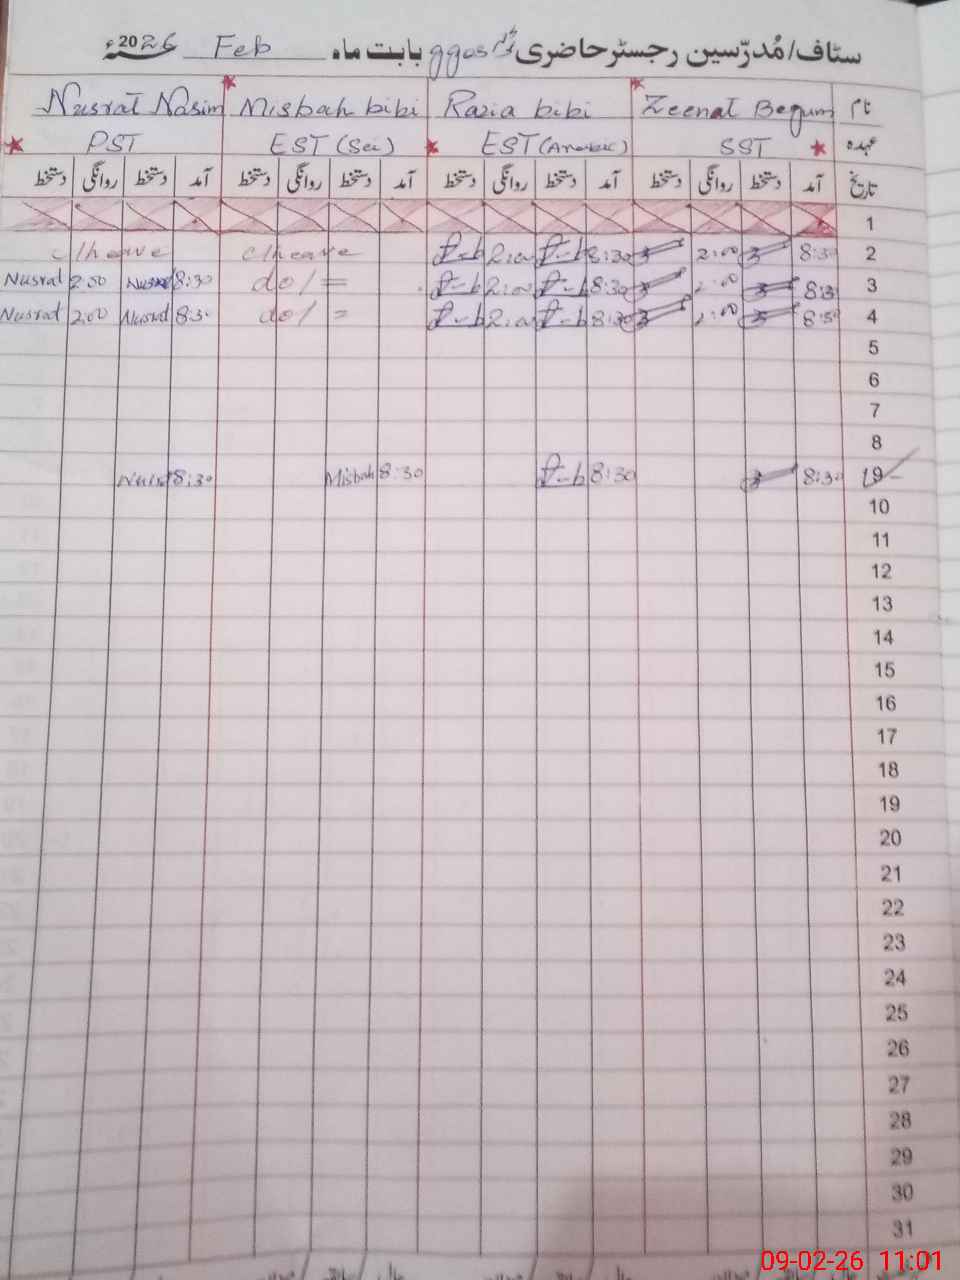 سٹاف/مُدرّسین رجسٹر حاضری ggos بابت ماہ Feb 2026ء
نام Zeenat Begum Razia bibi Misbah bibi Nusrat Nasim
عہدہ SST EST (Arabic) EST (Sci) PST
تاریخ آمد دستخط روانگی دستخط آمد دستخط روانگی دستخط آمد دستخط روانگی دستخط آمد دستخط روانگی دستخط
1
2 8:30 2:00 8:30 2:00 c/leave c/leave
3 8:30 2:00 8:30 2:00 do/= 8:30 Nusrat 2:00 Nusrat
4 8:30 2:00 8:30 2:00 do/= 8:30 Nusrat 2:00 Nusrat
5
6
7
8
9 8:30 8:30 8:30 Misbah 8:30 Nusrat
10
11
12
13
14
15
16
17
18
19
20
21
22
23
24
25
26
27
28
29
30
31
09-02-26 11:01